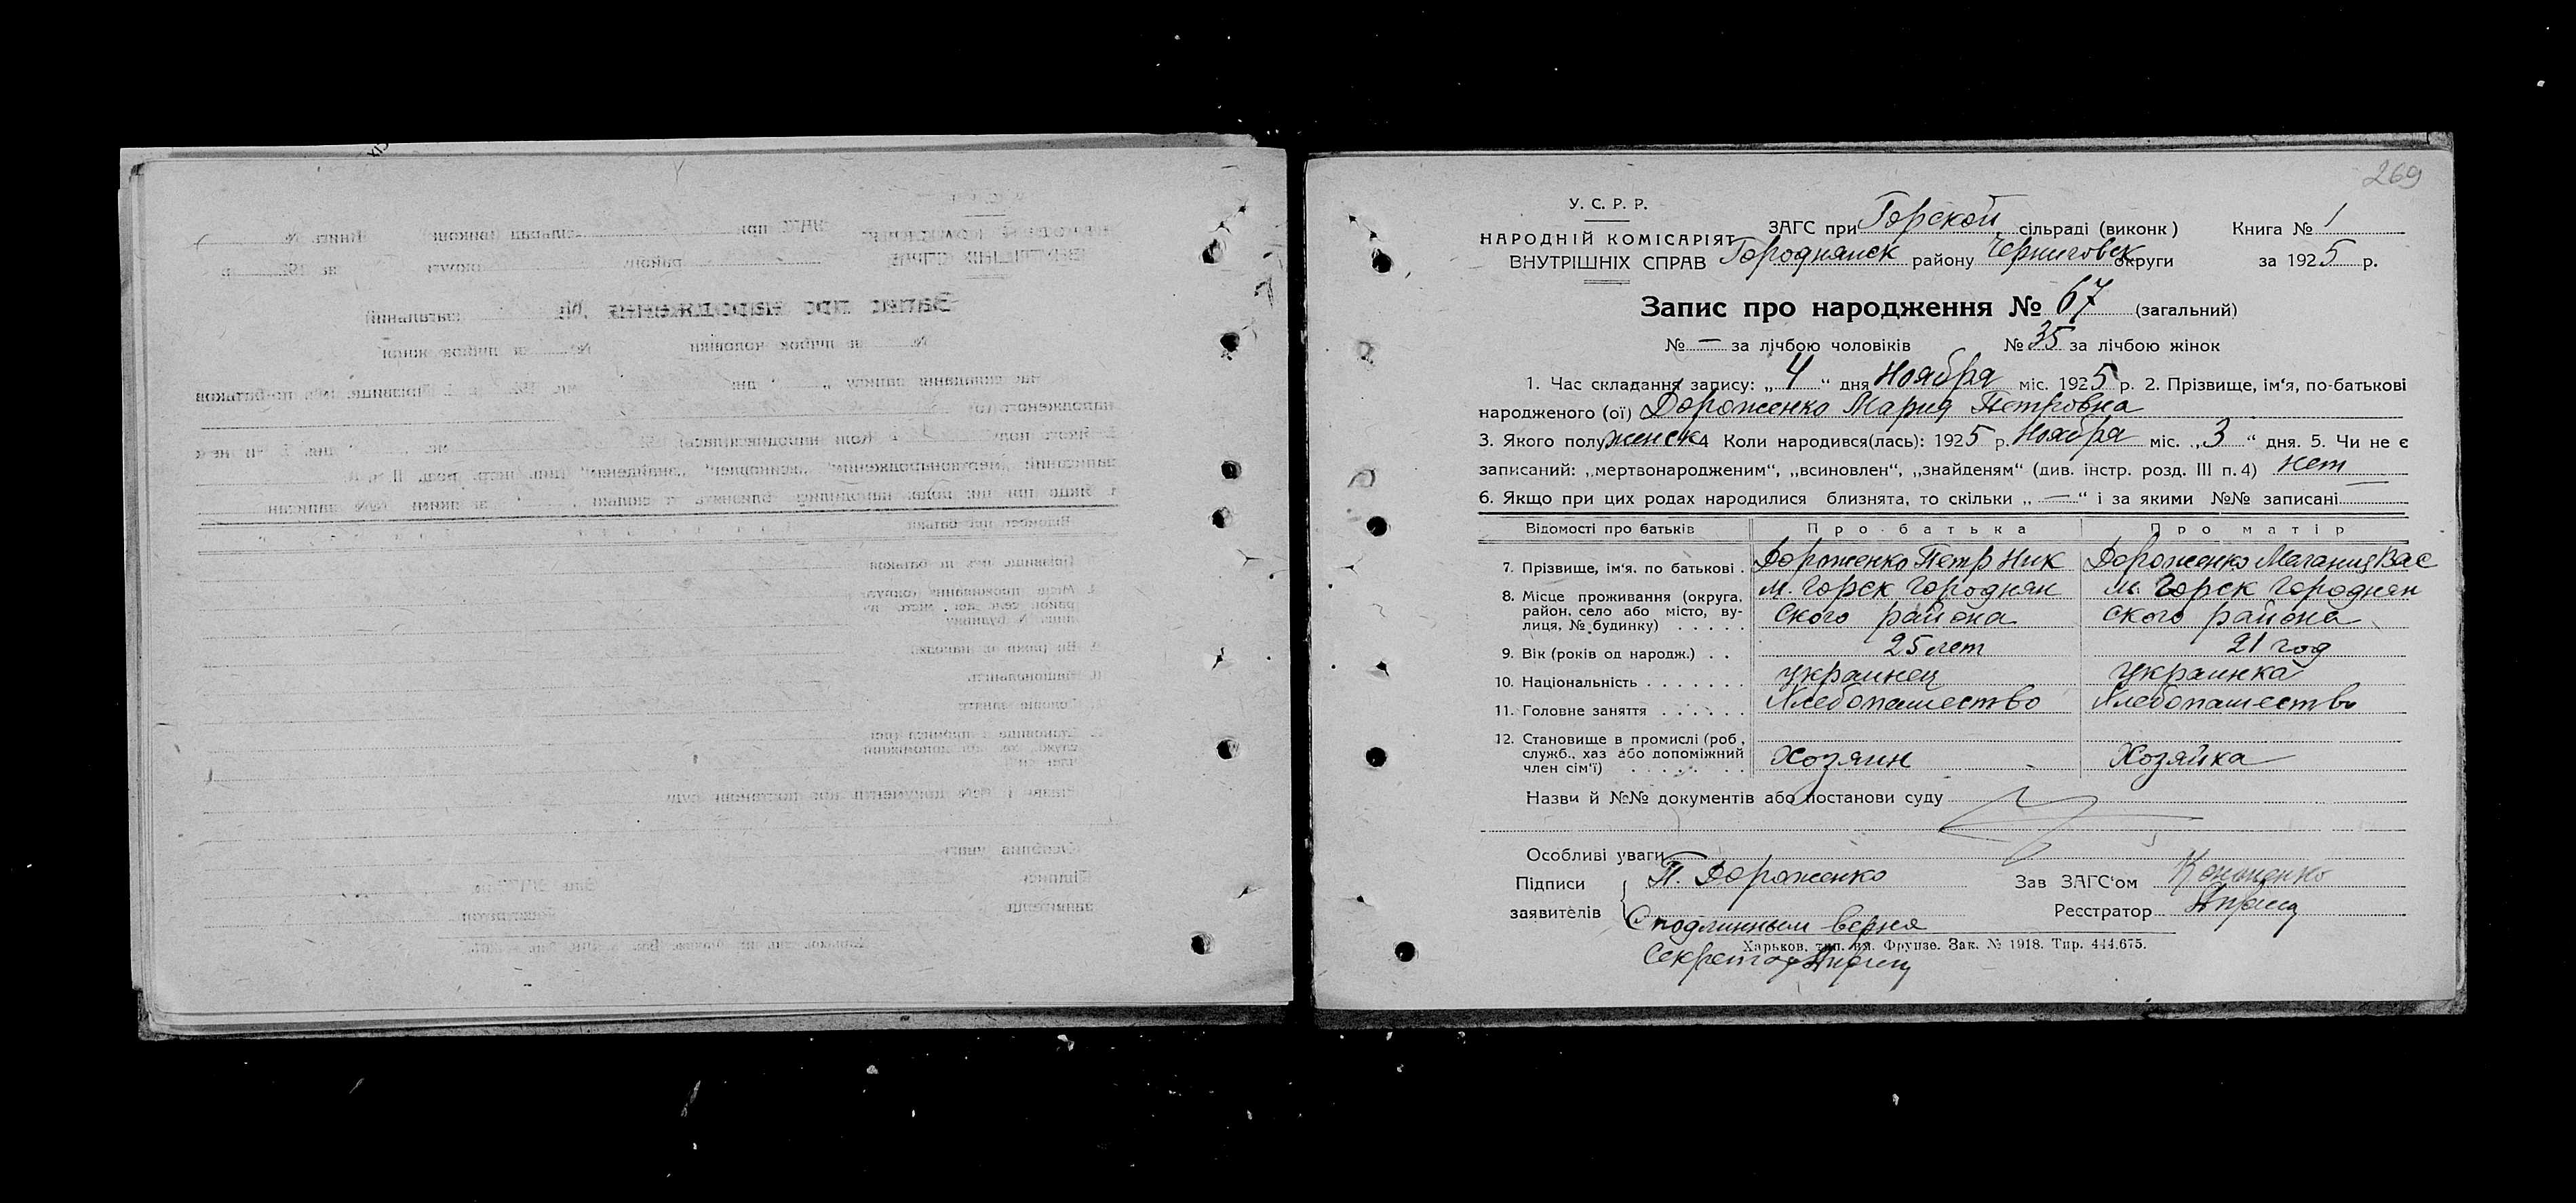 269
У. С. Р. Р.
НАРОДНІЙ КОМІСАРІЯТ
ВНУТРІШНІХ СПРАВ
ЗАГС при Горской сільраді (виконк) Книга № 1
Городнянск району Черниговск округи за 1925 р.
Запис про народження № 67 (загальний)
№ — за лічбою чоловіків № 35 за лічбою жінок
1. Час складання запису: „ 4 “ дня Ноября міс. 1925 р. 2. Прізвище, ім‘я, по-батькові
народженого (ої) Дороженко Мария Петровна
3. Якого полу женск 4 Коли народився(лась): 1925 р. Ноября міс. „ 3 “ дня. 5. Чи не є
записаний: „мертвонародженим“, „всиновлен“, „знайденям“ (див. інстр. розд. III п. 4) нет
6. Якщо при цих родах народилися близнята, то скільки „ — “ і за якими №№ записані —
Відомості про батьків Про батька Про матір
7. Прізвище, ім‘я. по батькові . Дороженко Петр Ник Дороженко Вас
8. Місце проживання (округа, район, село або місто, вулиця, № будинку) . . . . . м. Горск Городнян м. Горск Городнян
ского района ского района
9. Вік (років од народж.) . . 25 лет 21 год
10. Національність . . . . . . . украинец украинка
11. Головне заняття . . . . . . Хлебопашество Хлебопашество
12. Становище в промислі (роб, служб., хаз або допоміжний член сім‘ї) . . . . . . Хозяин Хозяйка
Назви й №№ документів або постанови суду
Особливі уваги
Підписи заявителів П. Дороженко
Зав ЗАГС‘ом Кононенко
Реєстратор
С подлинным верня
Харьков, тип. им. Фрунзе. Зак. № 1918. Тир. 444.675.
Секретар